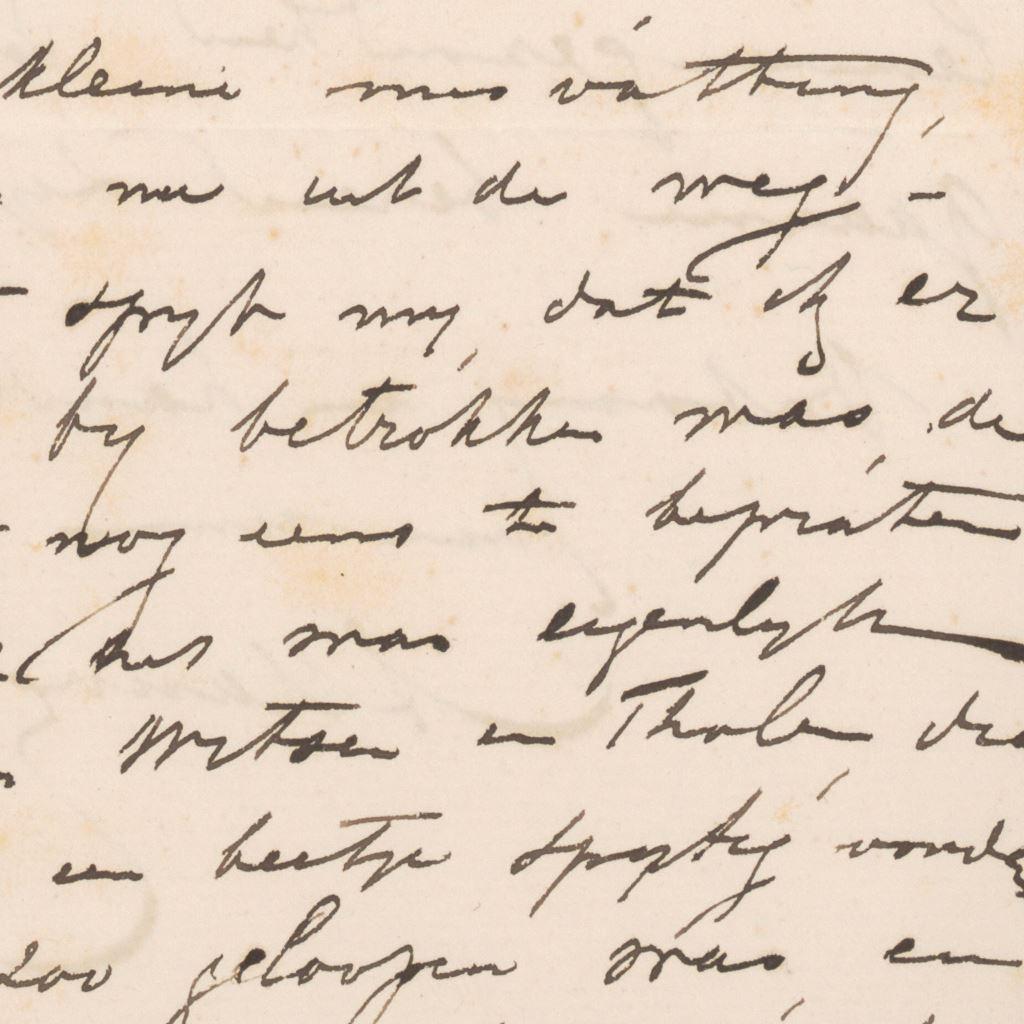 kleine misvatting,
nu uit de weg -
spijt mij, dat ik er
bij betrokken was, de
nog eens te bepraten
het was eigenlijk
Witsen en Tholen die
een beetje spijtig vonden
zoo geloopen was en